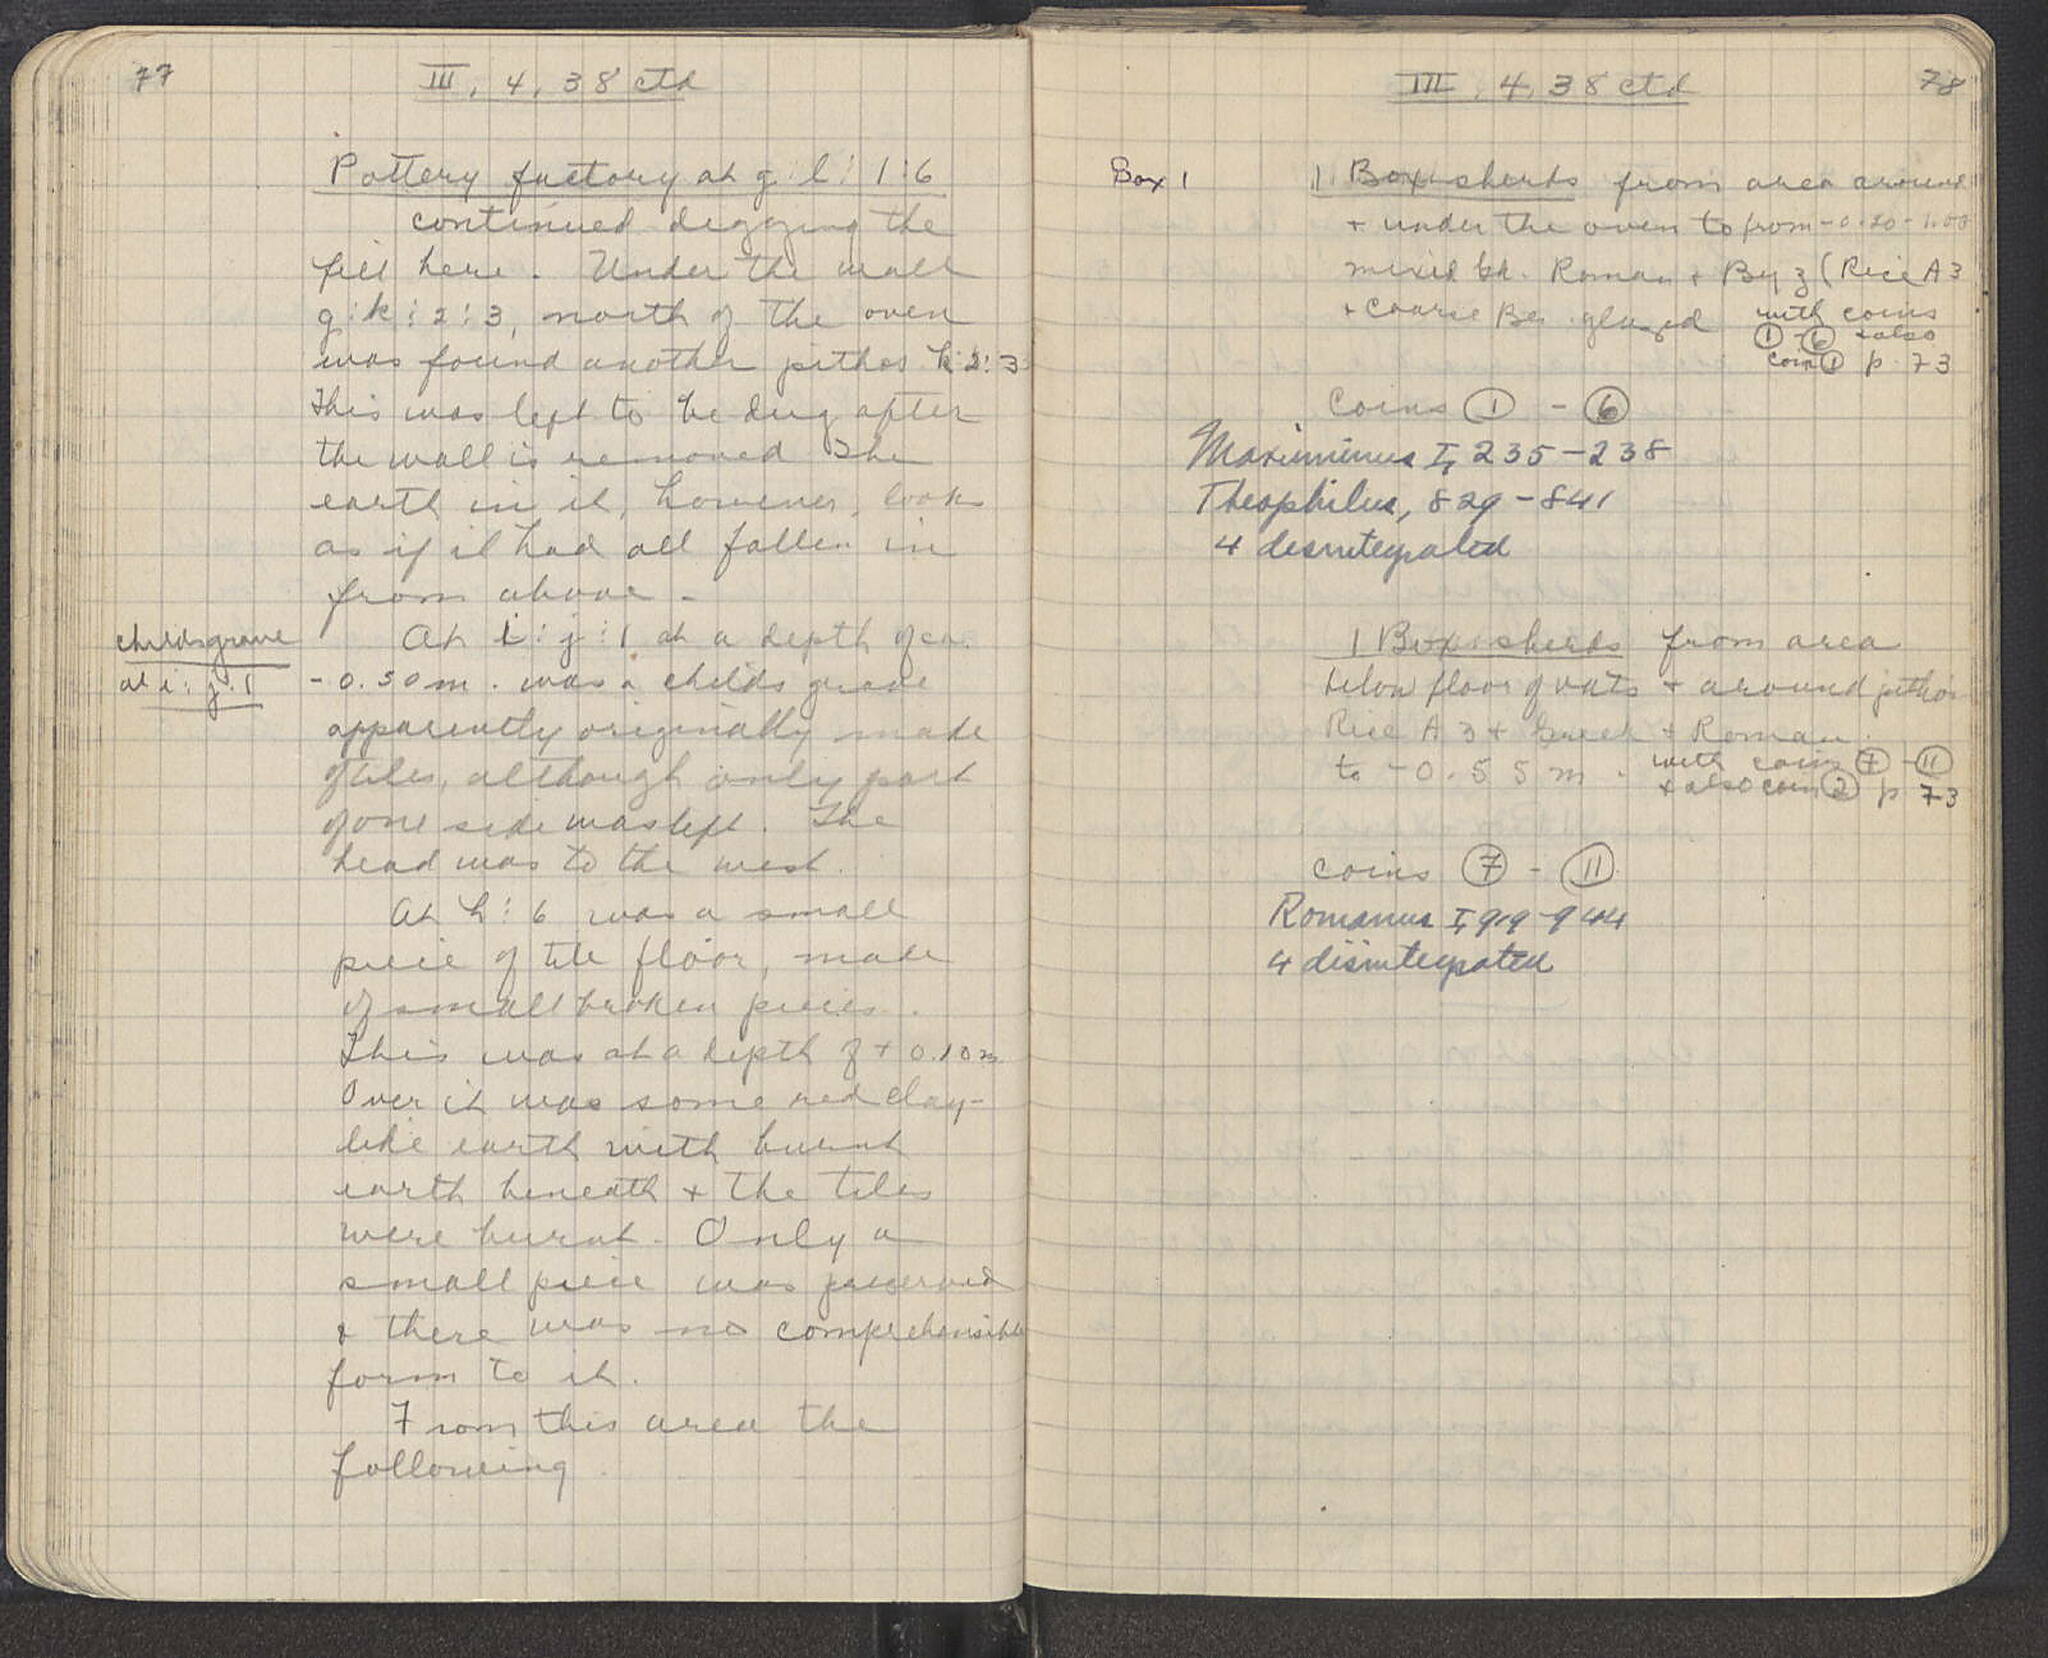 77
III, 4, 38 ctd
Pottery factory at g:l:1:6
continued digging the
fill here. Under the wall
g:k:2:3, north of the oven
was found another pithos k:2:3
This was left to be dug after
the wall is removed The
earth in it, however, looks
as if it had all fallen in
from above -
childs grave
at i:j:1
At i:j:1 at a depth of ca.
-0.50m. was a childs grave
apparently originally made
of tiles, although only part
of one side was left. The
head was to the west.
At h:6 was a small
piece of tile floor, made
of small broken pieces.
This was at a depth of +0.10m
Over it was some red clay-
like earth with burnt
earth beneath + the tiles
were burnt. Only a
small piece was preserved
+ there was no comprehensible
form to it.
From this area the
following
III, 4, 38 ctd
78
Box 1
1 Box sherds from area around
+ under the oven to from -0.20-1.00
mixed Roman + Byz (Rice A3
+ coarse glazed
with coins
① - ⑥ + also
coin ① p. 73
Coins ① - ⑥
Maximinus I, 235-238
Theophilus, 829-841
4 disintegrated
1 Box sherds from area
below floor of vats + around pithos
Rice A3 + Greek + Roman.
to -0.55m.
with coins ⑦ - ⑪
+ also coin ② p. 73
coins ⑦ - ⑪
Romanus I, 919-944
4 disintegrated